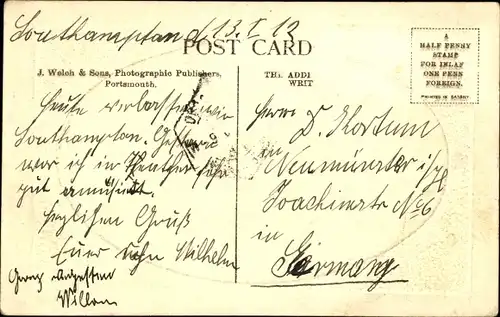 Southampton d 13. I. 12
POST CARD
J. Welch & Sons, Photographic Publishers,
Portsmouth.
THE ADDR
WRIT
A
HALF PENNY
STAMP
FOR INLAND
ONE PENNY
FOREIGN.
PRINTED IN SAXONY
Heute verlassen wir
Southampton. Gestern
war ich im Theather sehr
gut amüsirt.
Herzlichen Gruß
Euer Sohn Wilhelm
Willem
Herrn D. Kortum
in
Neumünster i/H
Joachimstr No 6
in
Germany